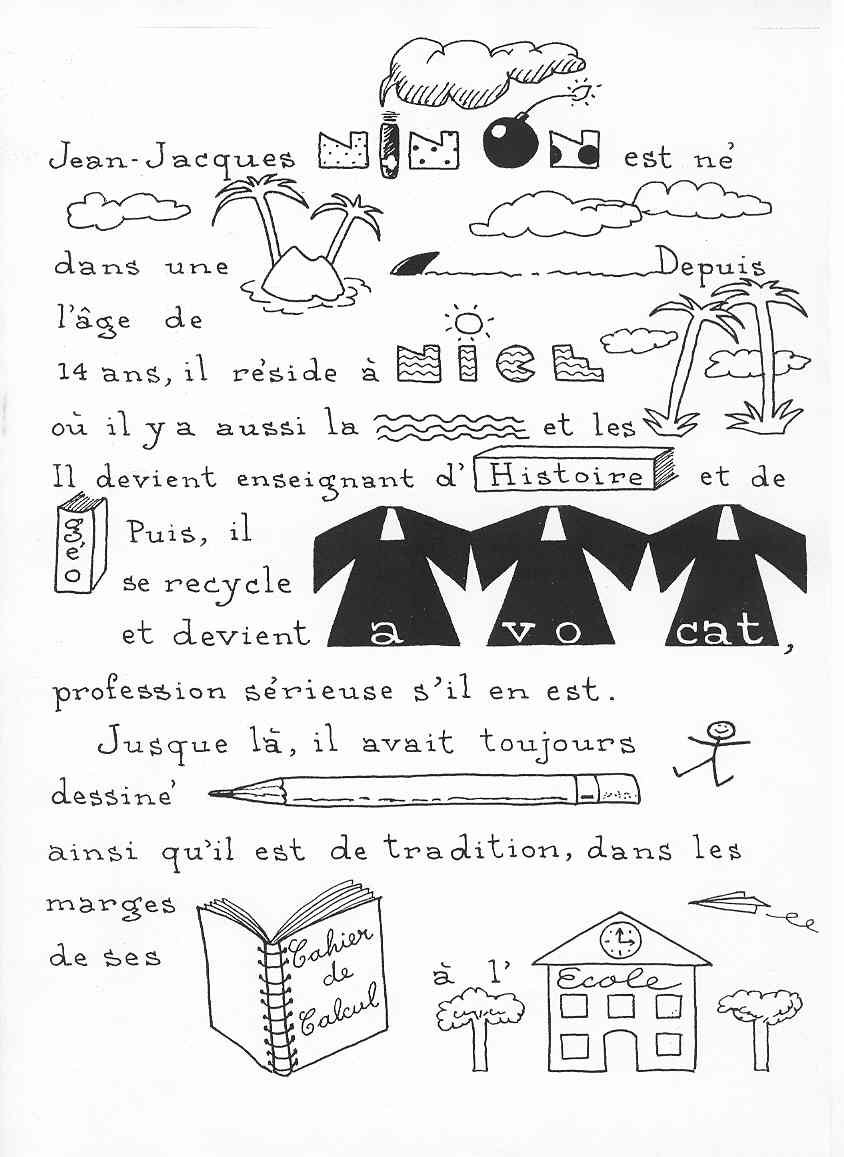 Jean-Jacques NINON est né
dans une
Depuis
l'âge de
14 ans, il réside à NICE
où il y a aussi la et les
Il devient enseignant d' Histoire et de
géo Puis, il
se recycle
et devient avocat,
profession sérieuse s'il en est.
Jusque là, il avait toujours
dessiné
ainsi qu'il est de tradition, dans les
marges
de ses
Cahier
de
Calcul
à l'
Ecole